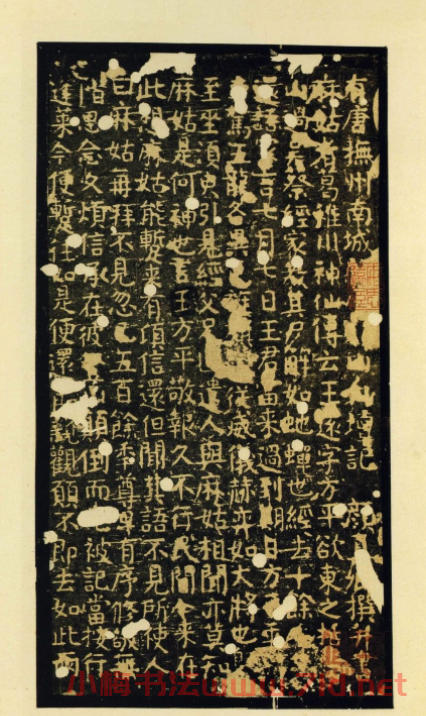 有唐撫州南城 山仙壇記 顏 撰并書
麻姑者葛稚川神仙傳云王遠字方平欲東之括
山過 祭經家教其尸解如蛇蟬也經去十餘
還 言七月七日王君當來過到期日方平乘
駕五龍各異色 從威儀赫弈如大將也
至坐須臾引見經父兄 遣人與麻姑相聞亦莫知
麻姑是何神也言王方平敬報久不行民間今來在
此想麻姑能暫來有傾信還但聞其語不見所使人
曰麻姑再拜不見忽已五百餘年尊卑有序脩敬無
階思念久煩信承在彼 顛倒而 被記當按行
蓬萊今便暫往如是便還 親覲願不即去如此兩
小梅书法www.7kl.net